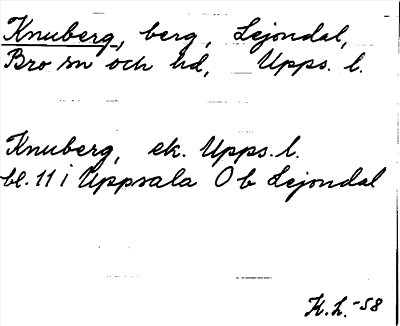 Knuberg, berg, Lejondal,
Bro sn och hd, Upps. l.
Knuberg, ek. Upps. l.
bl. 11 i Uppsala O b Lejondal
K.L.-58